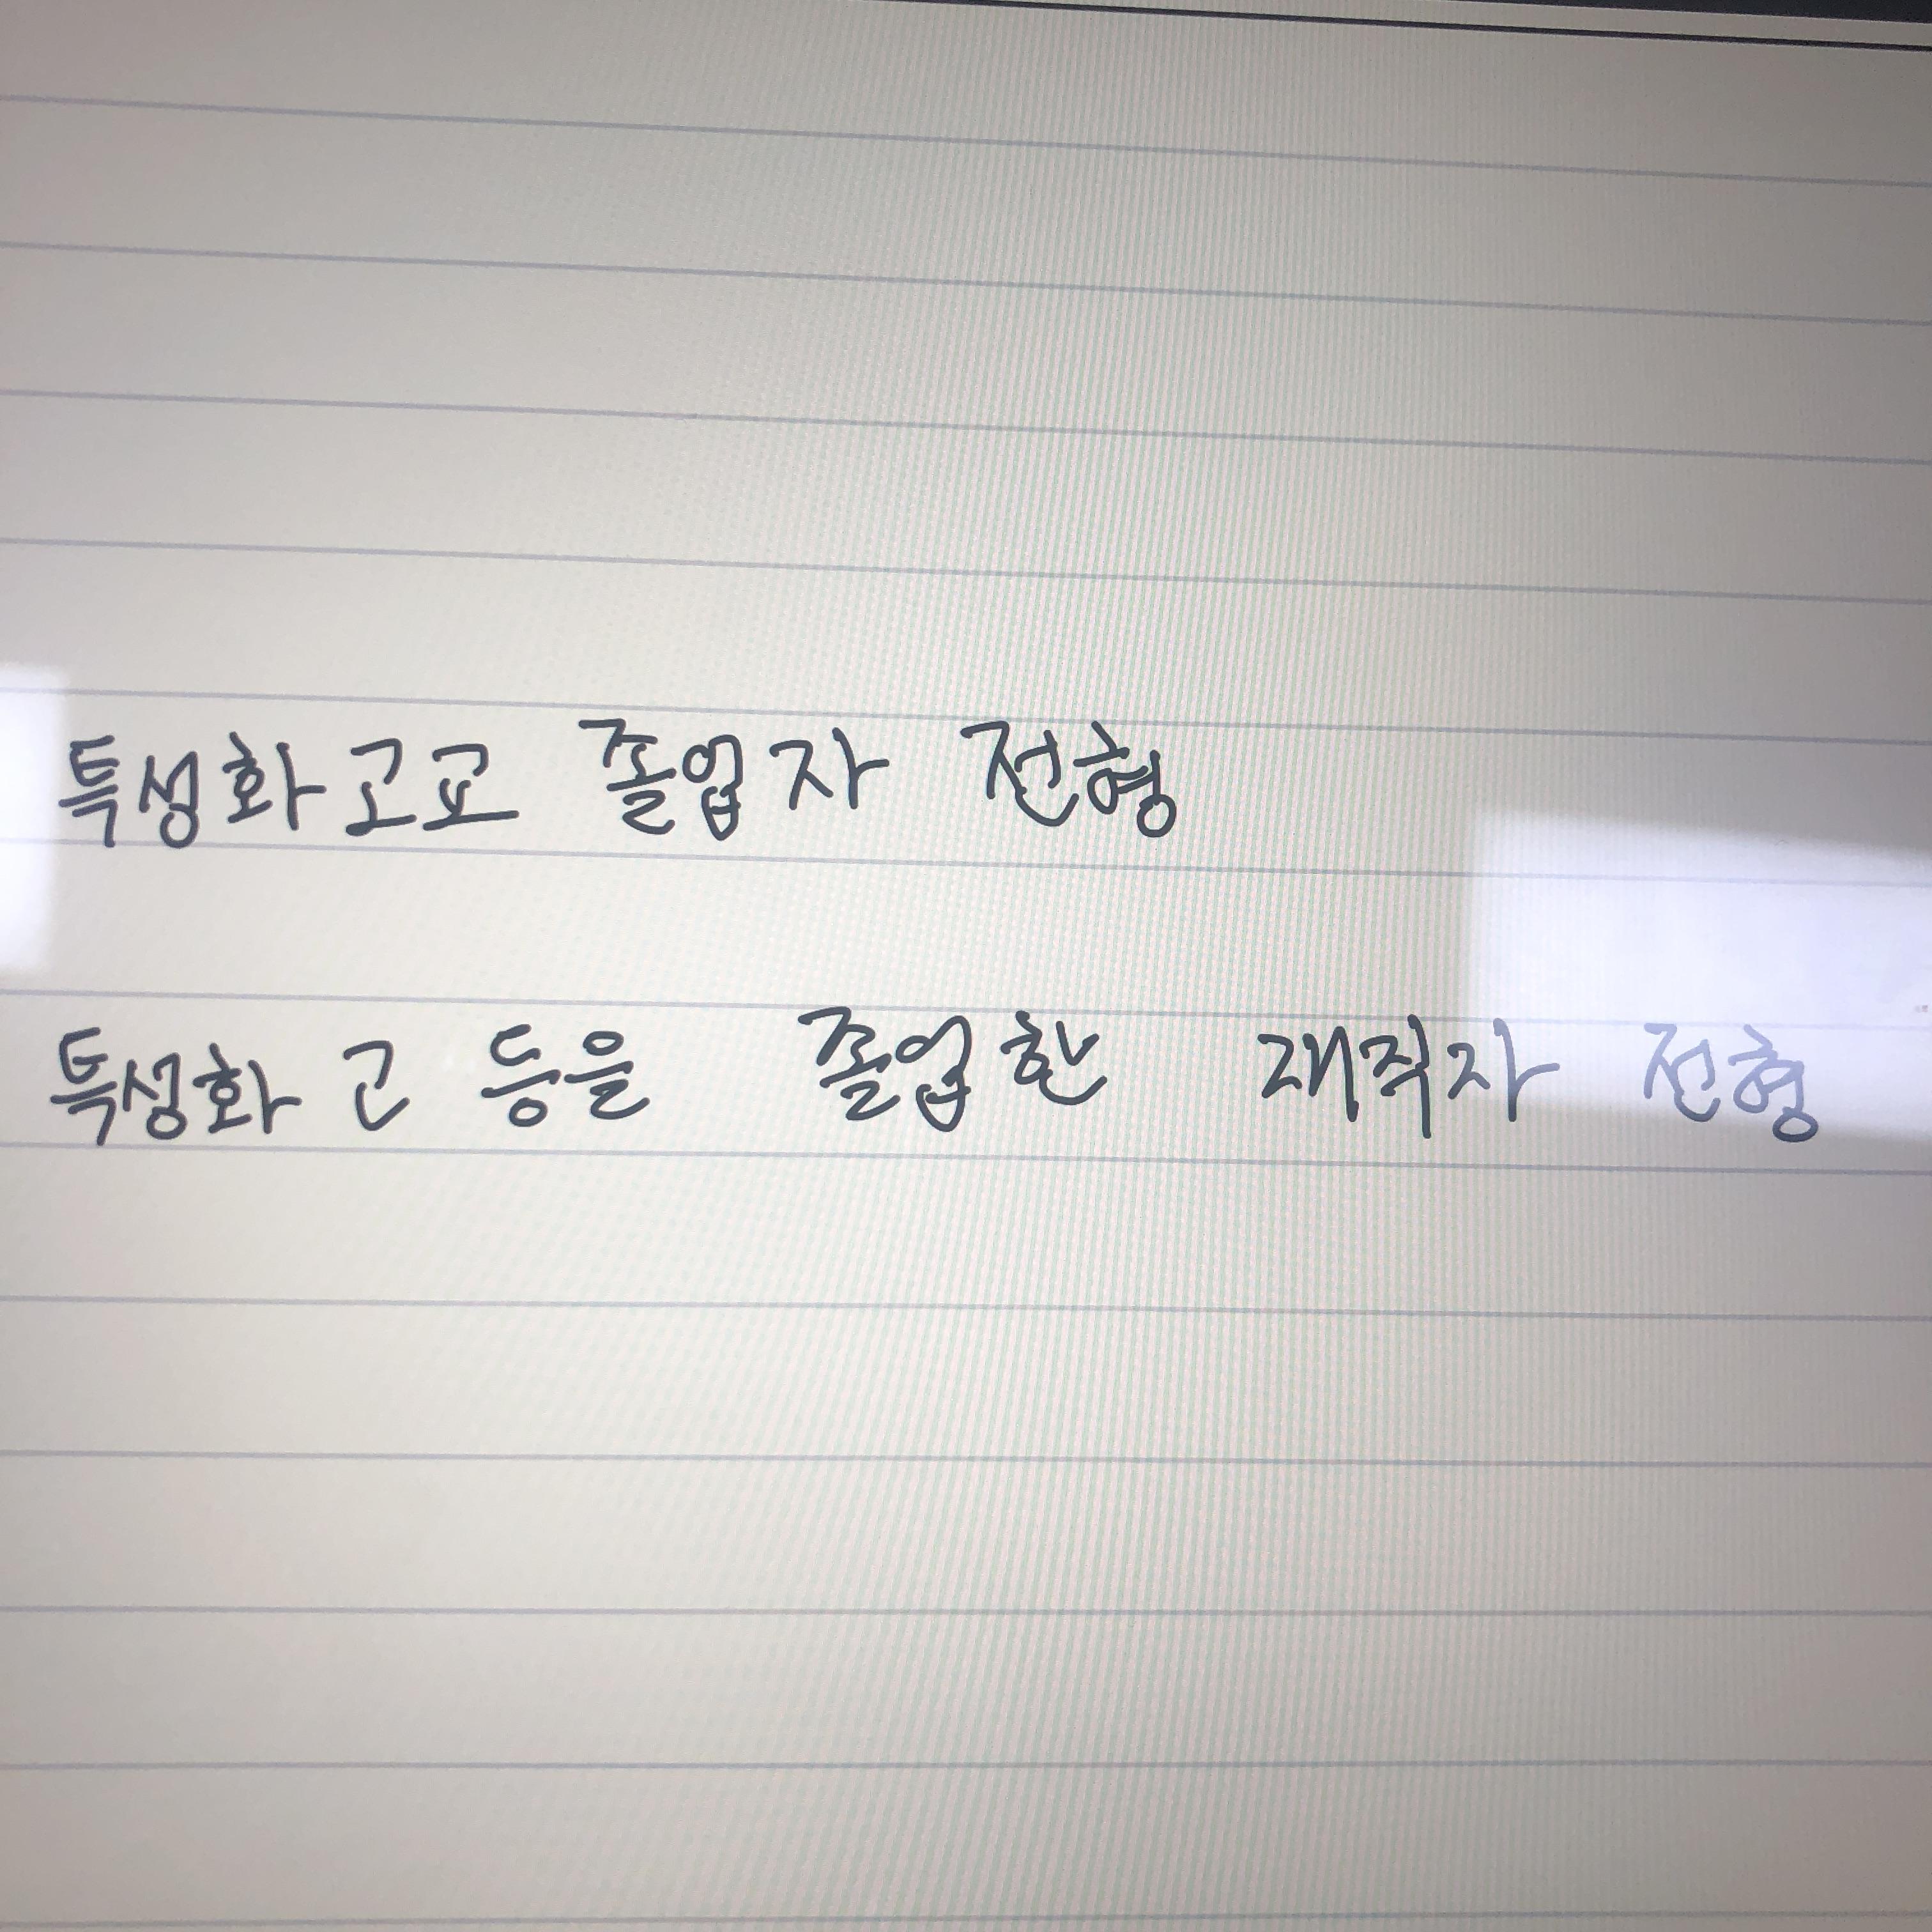 특성화고교 졸업자 전형
특성화 고 등을 졸업한 재직자 전형